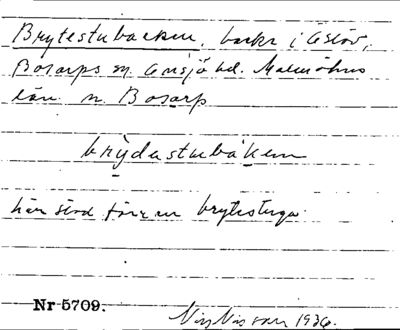 Brytestubacken, backe i Eslöv,
Bosarps sn. Onsjö hd. Malmöhus
län n. Bosarp
brydastubaken
här stod förr en brytestuga.
Nr 5709.
Nils Nilsson 1936.